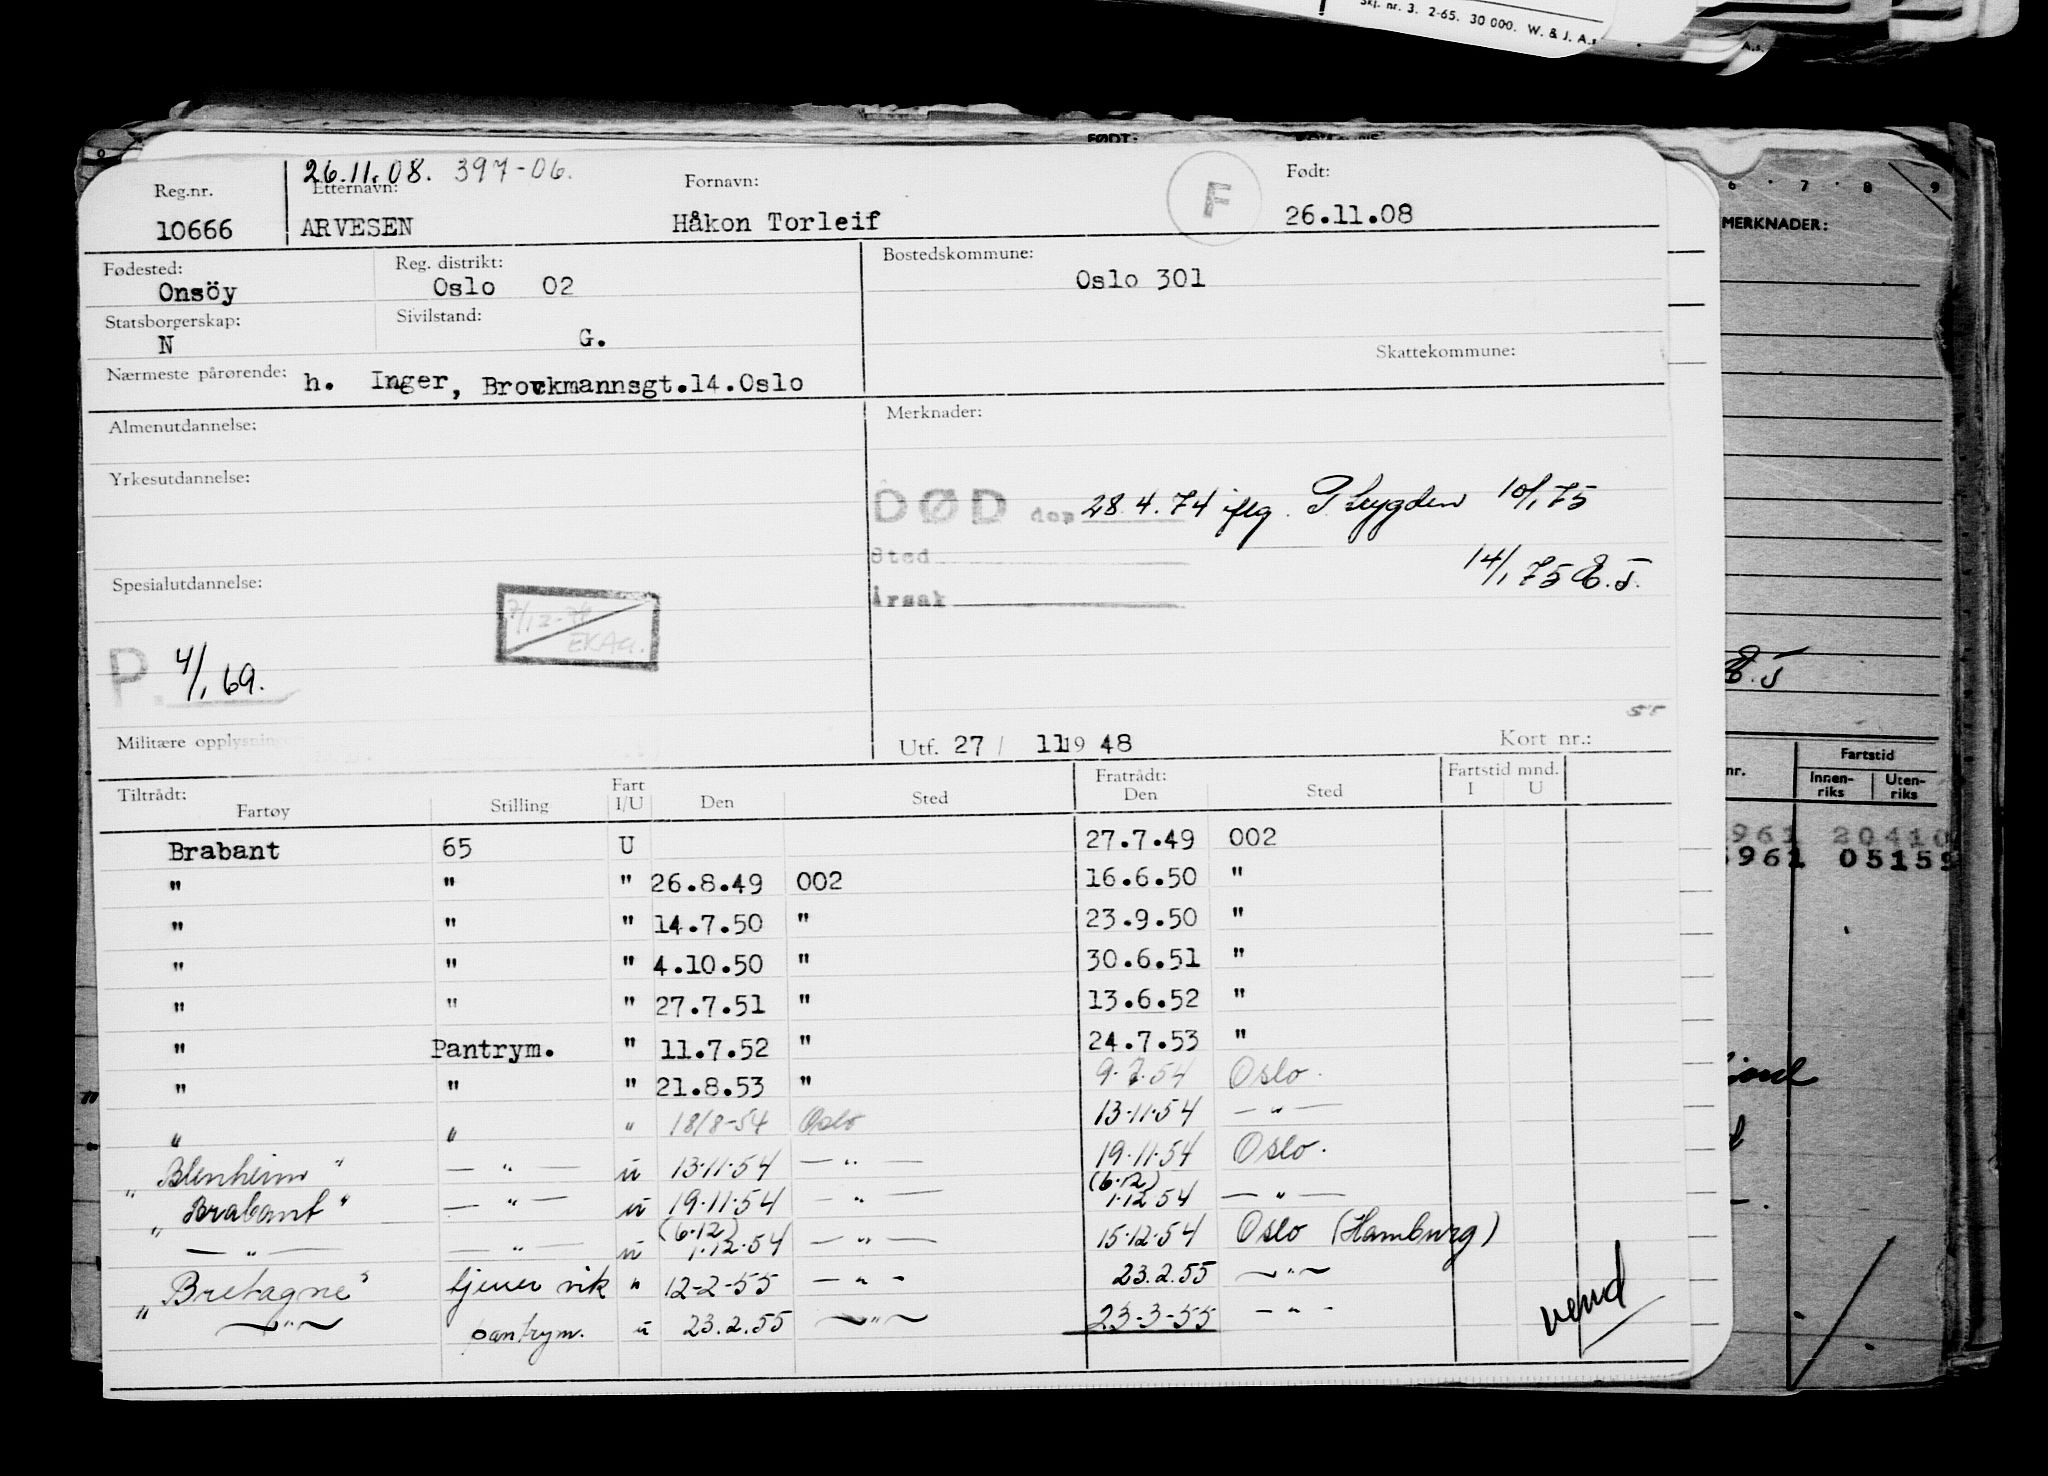 Skj. nr. 3. 2-65. 30 000. W. & J. A.s
A.s.
FØDT:
26.11.08. 397-06.
Reg.nr. Etternavn: Fornavn: F Født:
10666 ARVESEN Håkon Torleif 26.11.08
Fødested: Reg. distrikt: Bostedskommune:
Onsöy Oslo 02 Oslo 301
Statsborgerskap: Sivilstand:
N G.
Skattekommune:
Nærmeste pårørende: h. Inger, Brockmannsgt.14.Oslo
Almenutdannelse: Merknader:
Yrkesutdannelse:
DØD den 28.4.74 iflg. P. trygden 10/1 75
Sted
14/1 75 E.J.
Årsak
Spesialutdannelse:
P. 4/1 69.
Militære opplysninger
Utf. 27 / 11 19 48 Kort nr.:
Tiltrådt: Fratrådt: Fartstid mnd.
Fartøy Stilling Fart I/U Den Sted Den Sted I U
Brabant 65 U 27.7.49 002
" " " 26.8.49 002 16.6.50 "
" " " 14.7.50 " 23.9.50 "
" " " 4.10.50 " 30.6.51 "
" " " 27.7.51 " 13.6.52 "
" Pantrym. " 11.7.52 " 24.7.53 "
" " " 21.8.53 " 9.7.54 Oslo.
" " " 18/8-54 Oslo 13.11.54 — " —
"Blenheim" — " — u 13.11.54 — " — 19.11.54 Oslo.
"Brabant" — " — u 19.11.54 — " — (6.12) 1.12 54 — " —
— " — — " — u (6.12) 1.12.54 — " — 15.12.54 Oslo (Hamburg)
"Bretagne" tjener vik " 12-2-55 — " - 23.2.55 — " —
— " — pantrym. u 23.2.55 — " — 23-3-55 — " -
vend
6 . 7 . 8 9
MERKNADER:
E.J
nr. Fartstid
Innen-riks Uten-riks
961 20410
961 05159